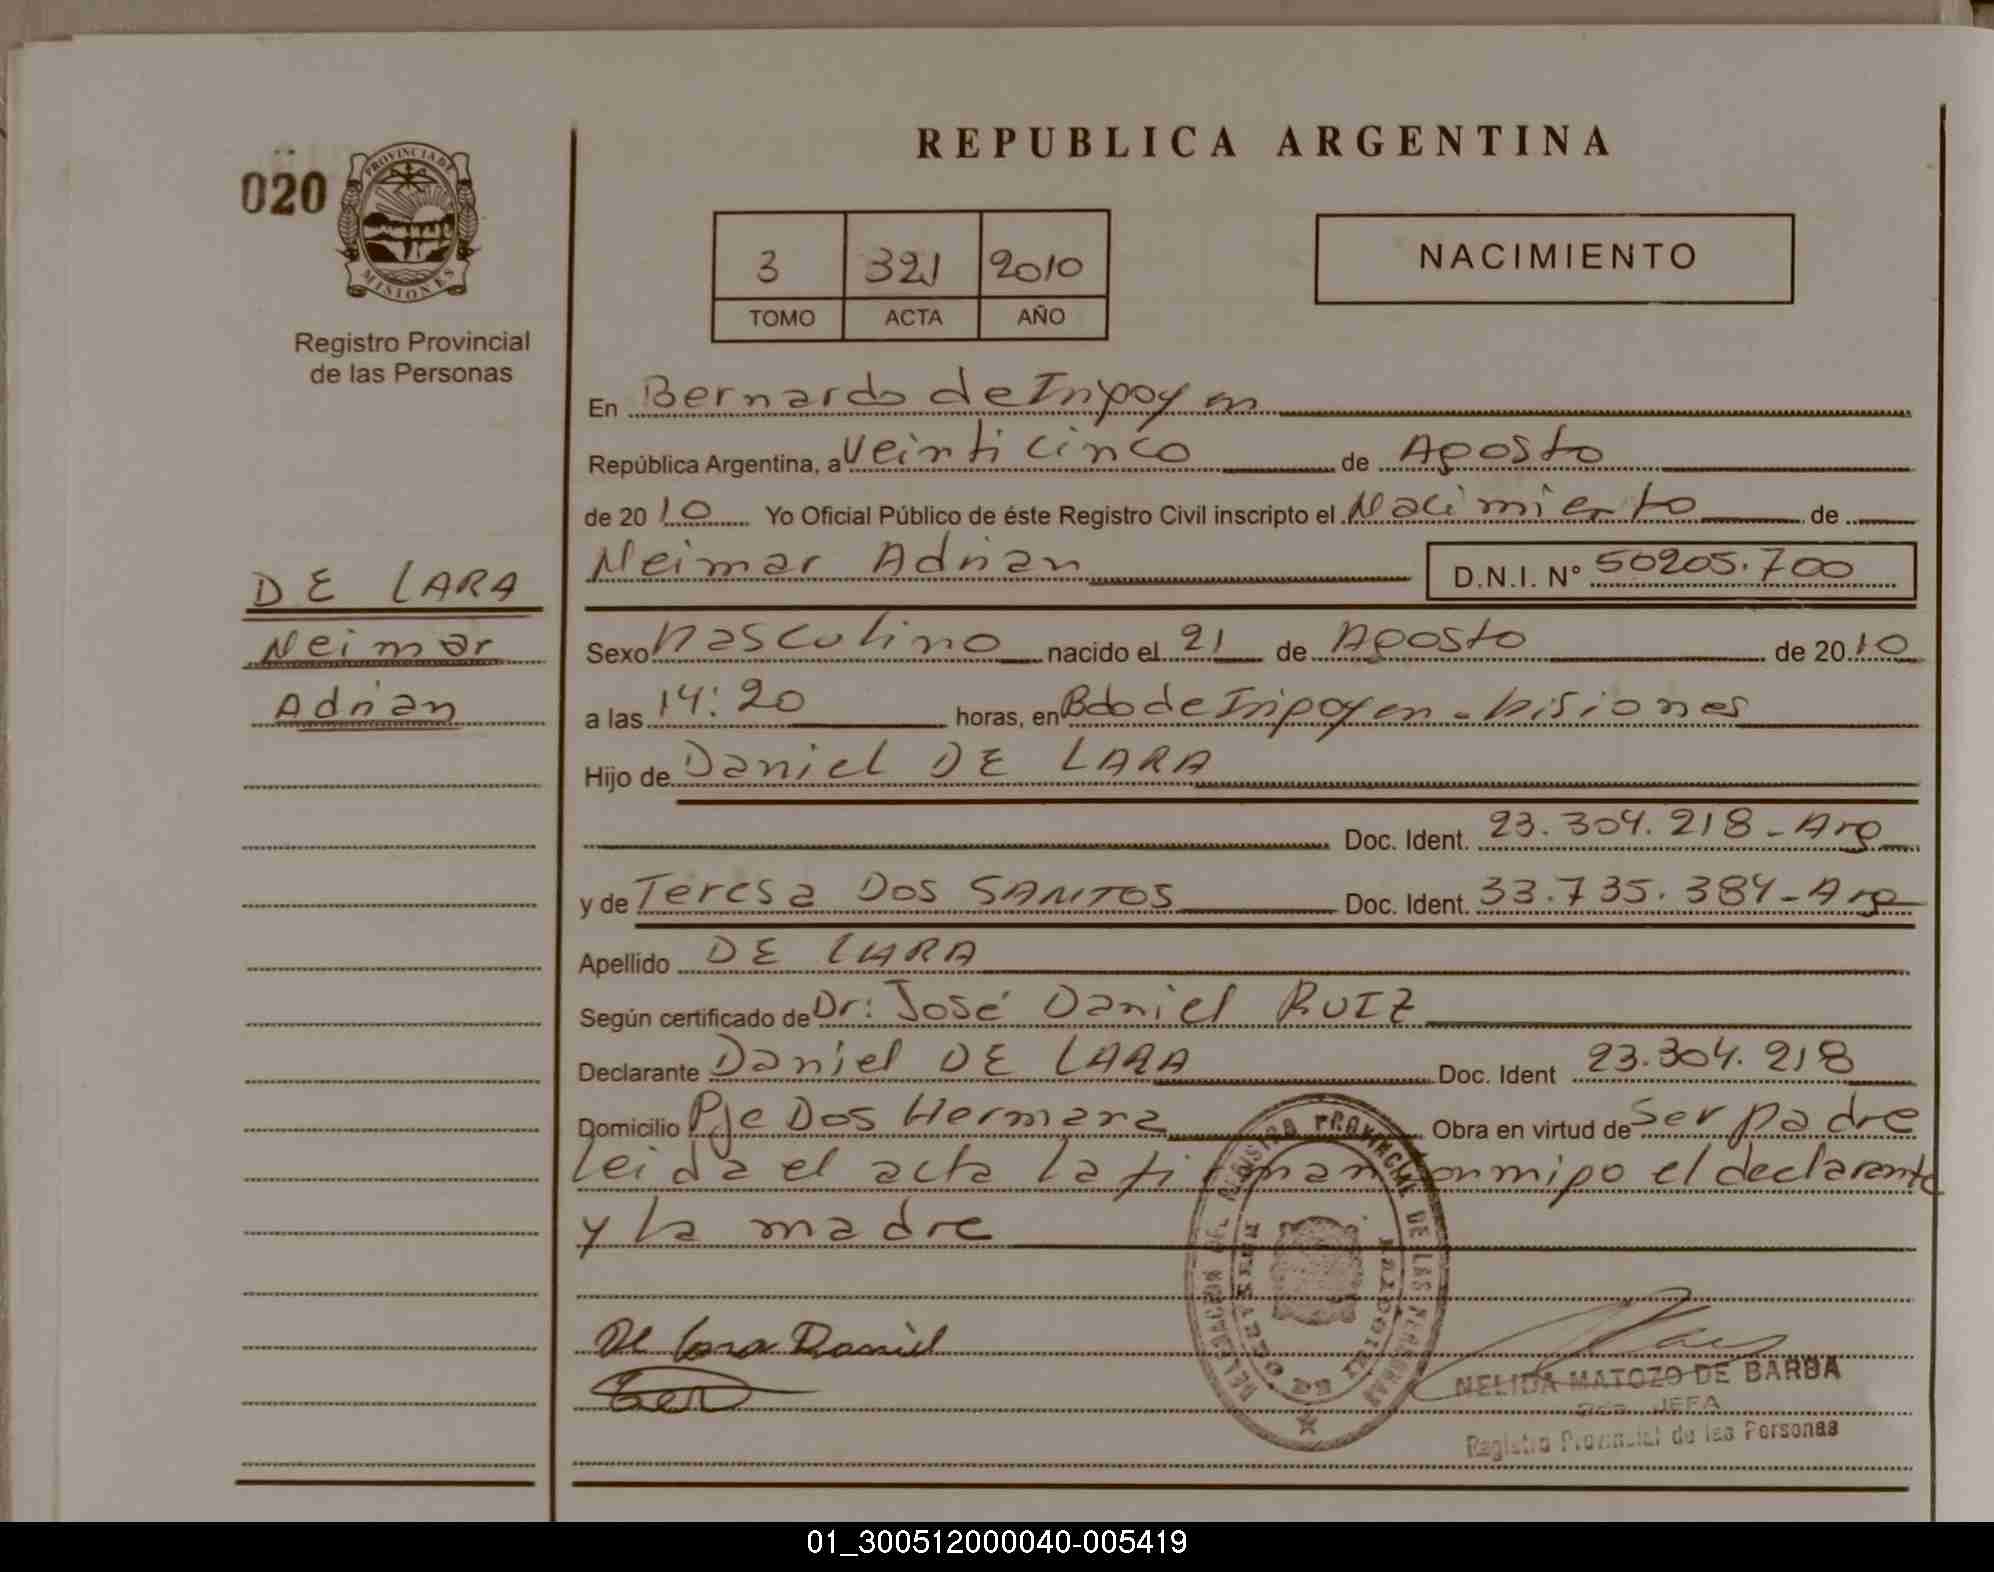 REPUBLICA ARGENTINA
020
PROVINCIA DE
MISIONES
Registro Provincial
de las Personas
3 321 2010
TOMO ACTA AÑO
NACIMIENTO
En Bernardo de Irigoyen
República Argentina, a Veinticinco de Agosto
de 2010 Yo Oficial Público de éste Registro Civil inscripto el Nacimiento de
Neimar Adrian D.N.I. Nº 50205.700
DE LARA
Neimar
Adrian
Sexo Masculino nacido el 21 de Agosto de 2010
a las 14:20 horas, en Bdo de Irigoyen - Misiones
Hijo de Daniel DE LARA
Doc. Ident. 23.304.218 - Arg
y de Teresa DOS SANTOS Doc. Ident. 33.735.384 - Arg
Apellido DE LARA
Según certificado de Dr: José Daniel RUIZ
Declarante Daniel DE LARA Doc. Ident 23.304.218
Domicilio Pje Dos Hermana Obra en virtud de Ser padre
leida el acta la firman conmigo el declarante
y la madre
De Lara Daniel
DELEGACION DEL REGISTRO PROVINCIAL DE LAS PERSONAS
NELIDA MATOZO DE BARBA
JEFA
Registro Provincial de las Personas
01_300512000040-005419